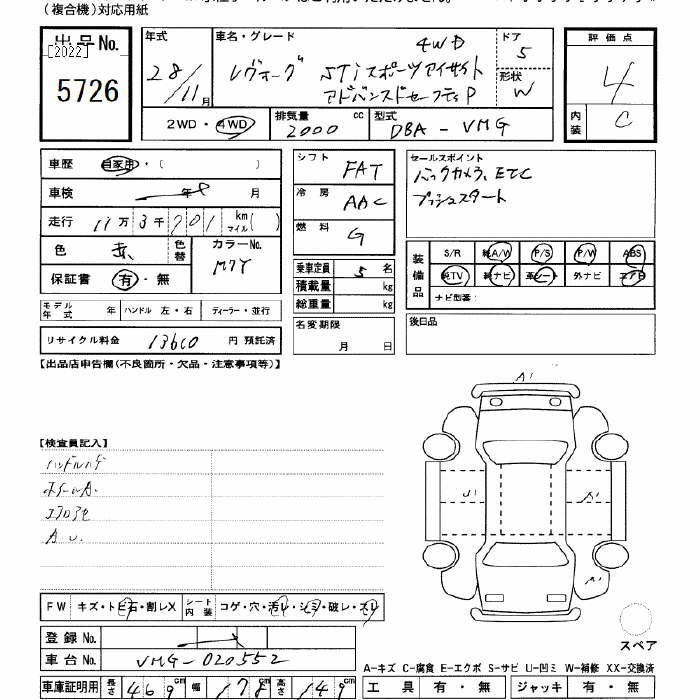 (複合機)対応用紙
出品No.
[2022]
5726
年式
28/11月
車名・グレード
4WD
レヴォーグ STiスポーツアイサイト
アドバンスドセーフティP
ドア
5
形状
W
評価点
4
内装
C
2WD・4WD
排気量
2000 cc
型式
DBA-VMG
車歴 自家用・( )
車検 年 月
走行 11万3千701 km マイル( )
色 赤 色替
カラーNo.
M7Y
保証書 有・無
シフト
FAT
冷房
AAC
燃料
G
乗車定員 5名
積載量 kg
総重量 kg
セールスポイント
バックカメラ、ETC
プッシュスタート
装備品
S/R 純A/W P/S P/W ABS
純TV 純ナビ 革シート 外ナビ エアB
ナビ型番:
モデル年式 年 ハンドル 左・右 ディーラー・並行
名変期限
月 日
後日品
リサイクル料金 13600 円 預託済
【出品店申告欄(不良箇所・欠品・注意事項等)】
A1
【検査員記入】
ハンドルハゲ
ホイールA.
エアロ色
A U.
U1
A1
A1
FW キズ・トビ石・割レX シート内装 コゲ・穴・汚レ・シミ・破レ・スレ
登録No.
車台No. VMG-020552
スペア
A-キズ C-腐食 E-エクボ S-サビ U-凹ミ W-補修 XX-交換済
車庫証明用 長さ 469cm 幅 178cm 高さ 149cm
工具 有・無 ジャッキ 有・無